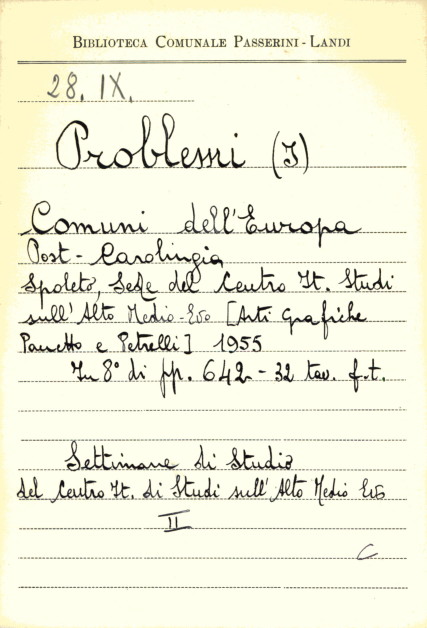 BIBLIOTECA COMUNALE PASSERINI-LANDI
28. IX.
Problemi (I)
Comuni dell'Europa
Post-Carolingia
Spoleto, Sede del Centro It. Studi
sull'Alto Medio-Evo [Arti Grafiche
Panetto e Petrelli] 1955
In 8° di pp. 642 - 32 tav. f.t.
Settimane di Studio
del Centro It. di Studi sull'Alto Medio Evo
II
C